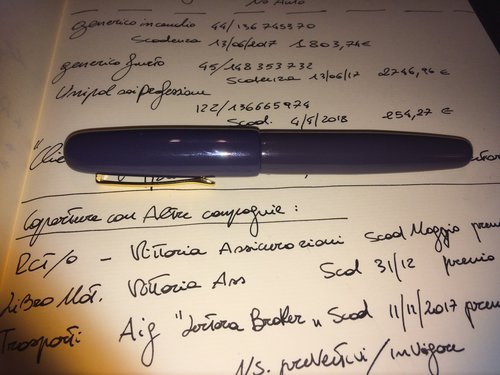 No Auto
generico incendio 44/136745370
Scadenza 13/06/2017 1.803,74€
generico furto 45/148353732
Scadenza 13/06/17 2746,96 €
Unipol sai professioni
122/136665974
Scad. 4/5/2018 254,27 €
Coperture con Altre compagnie :
RCT/o - Vittoria Assicurazioni Scad Maggio
Libro Mat. Vittoria Ass Scad 31/12 premio
Trasporti Aig " Broker " Scad 11/11/2017
N/s. preventivi / in vigore